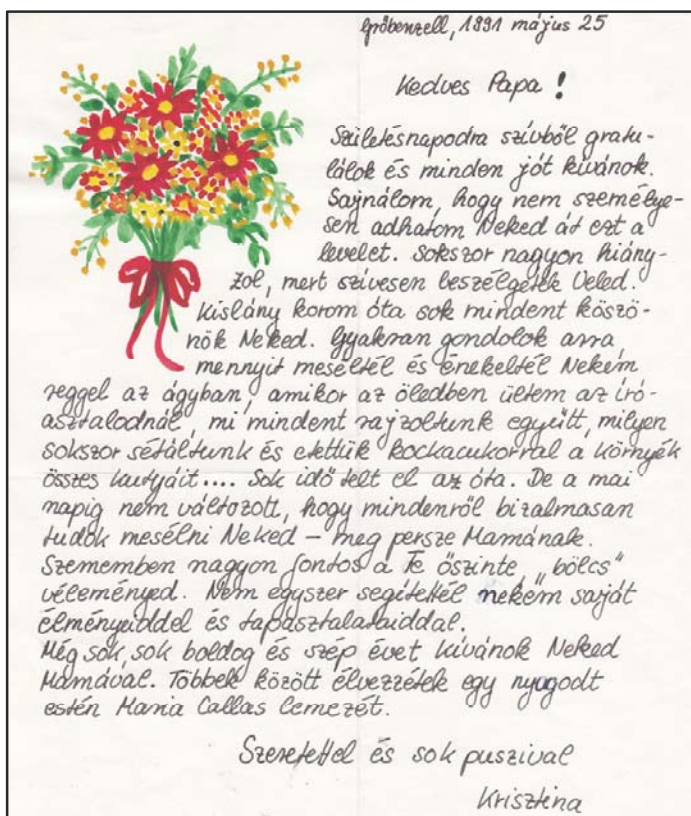 Gröbenzell, 1991 május 25
Kedves Papa !
Születésnapodra szívből gratu-
lálok és minden jót kívánok.
Sajnálom, hogy nem személye-
sen adhatom Neked át ezt a
levelet. Sokszor nagyon hiány-
zol, mert szívesen beszélgeték Veled.
Kislány korom óta sok mindent köszö-
nök Neked. Gyakran gondolok arra,
mennyit meséltél és énekeltél Nekem
reggel az ágyban, amikor az öledben ültem az író-
asztalodnál, mi mindent rajzoltunk együtt, milyen
sokszor sétáltunk és etettük kockacukorral a környék
összes kutyáit.... Sok idő telt el az óta. De a mai
napig nem változott, hogy mindenről bizalmasan
tudok mesélni Neked – meg persze Mamának.
Szememben nagyon fontos a Te őszinte „bölcs"
véleményed. Nem egyszer segítettél nekem saját
élményeiddel és tapasztalataiddal.
Még sok, sok boldog és szép évet kívánok Neked
Mamával. Többek között élvezzétek egy nyugodt
estén Maria Callas lemezét.
Szeretettel és sok puszival
Krisztina